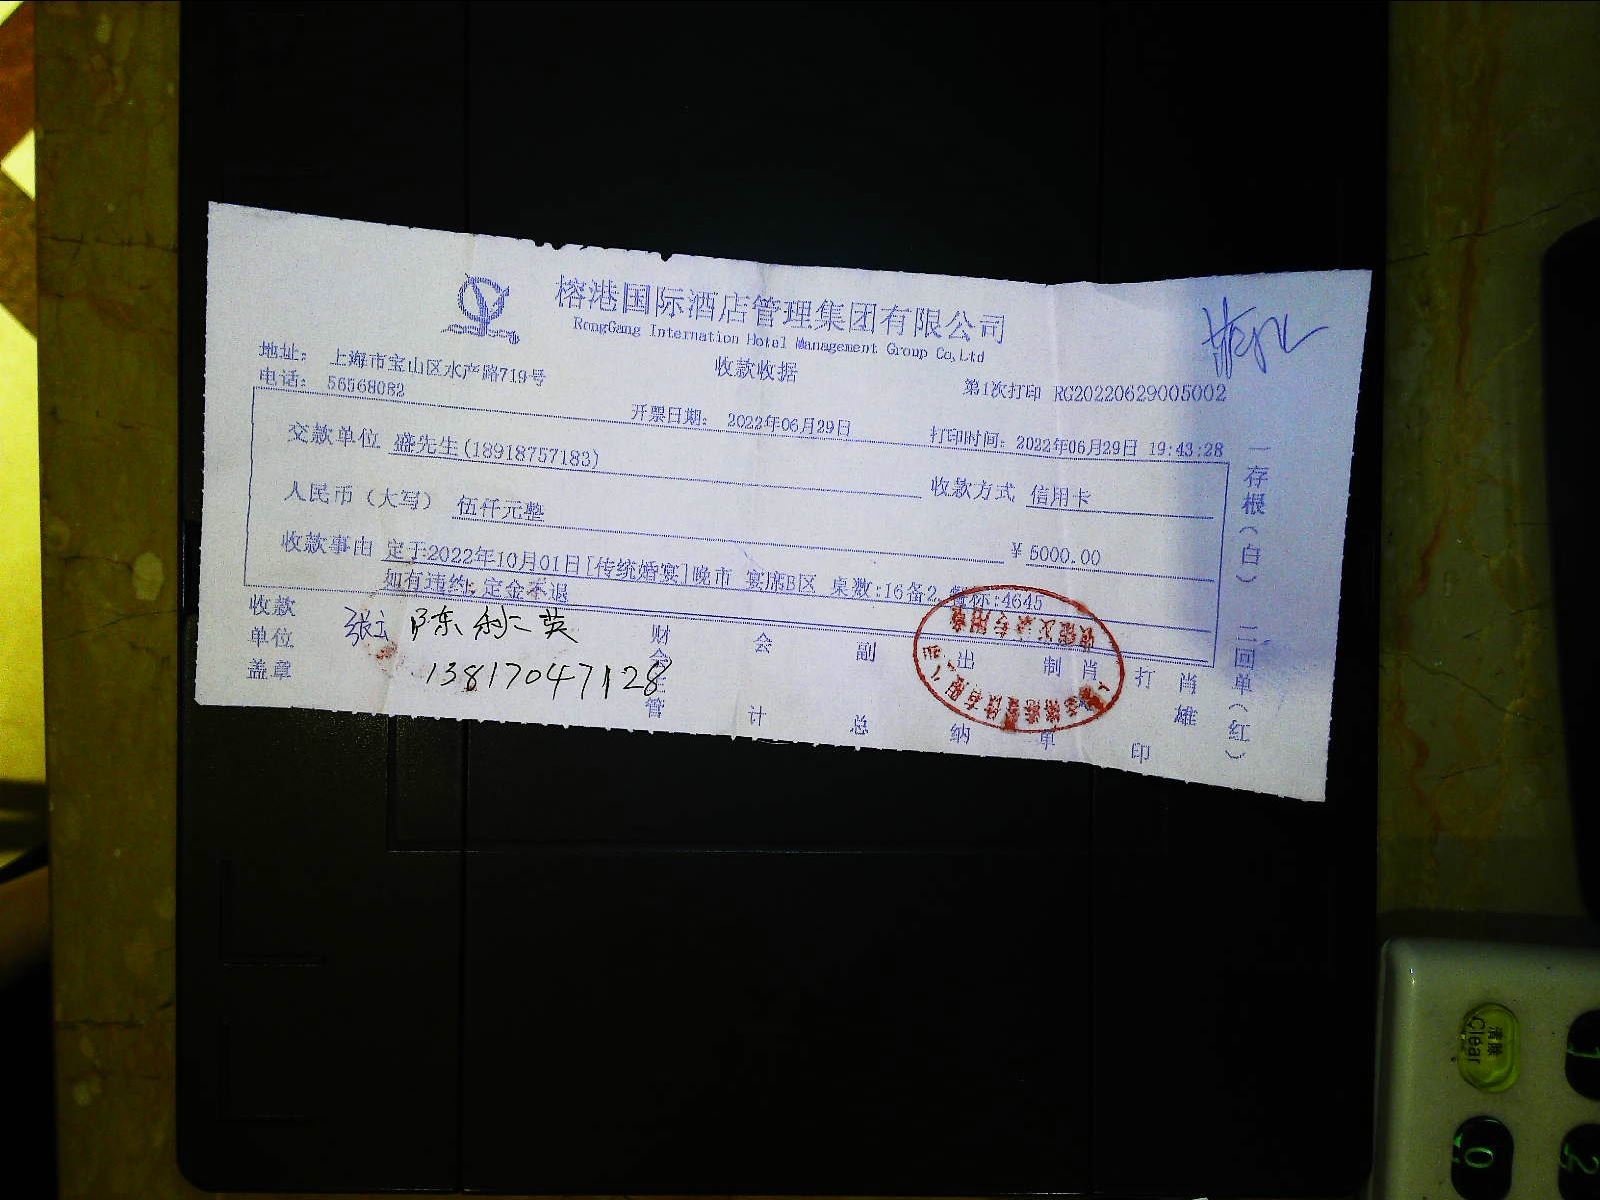 榕港国际酒店管理集团有限公司
RongGang Internation Hotel Management Group Co,Ltd
地址： 上海市宝山区水产路719号
收款收据
电话： 56568082
第1次打印 RG20220629005002
开票日期： 2022年06月29日
打印时间：2022年06月29日 19:43:28
交款单位 盛先生(18918757183)
收款方式 信用卡
人民币（大写） 伍仟元整
￥5000.00
收款事由 定于2022年10月01日[传统婚宴]晚市 宴席B区 桌数:16备2,餐标:4645
如有违约,定金不退
收款单位盖章
陈利英
13817047128
财会主管
会计
副总
出纳
制单
肖雄
打印
肖雄
一存根（白）
二回单（红）
清除
Clear
0
2